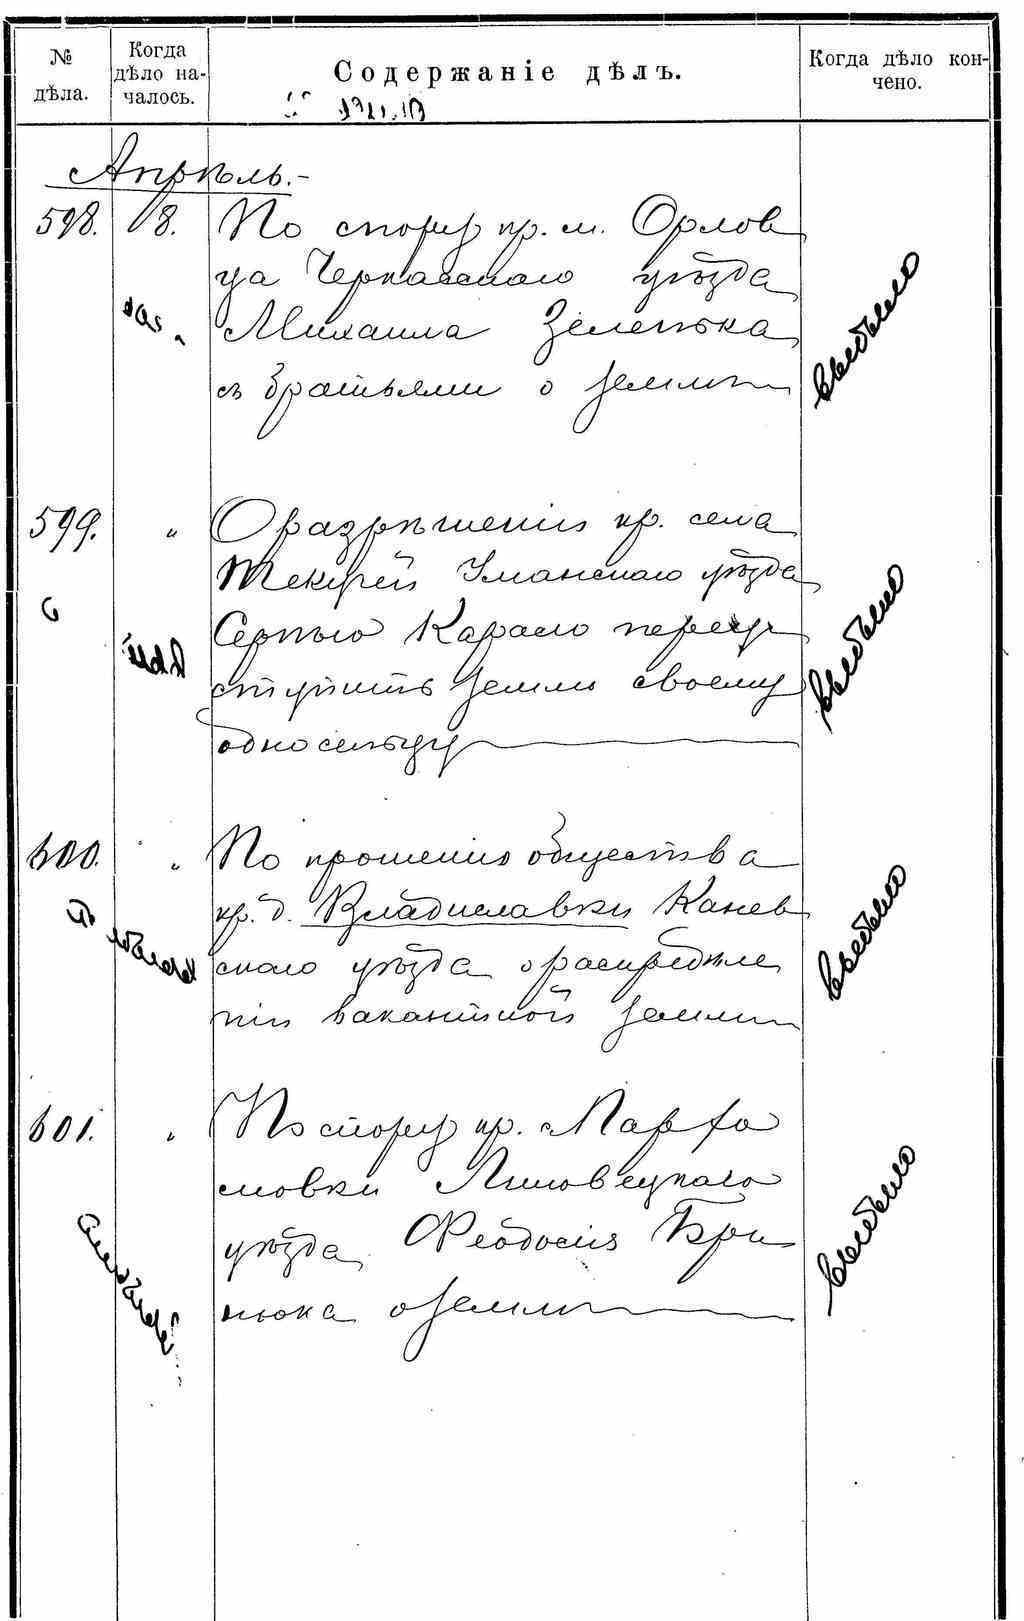 № дѣла.
Когда дѣло началось.
Содержаніе дѣлъ.
Когда дѣло кончено.
Апрѣль.-
598. 8. По спору кр. м. Орлов
ца Черкасскаго уѣзда
Михаила Зеленька
съ братьями о землѣ
выбыло
599. " О разрѣшеніи кр. села
Текучей Уманскаго уѣзда
Сергѣю
ступить землю своему
односельцу
выбыло
600. " По прошенію общества
кр. д. Владиславки Канев
скаго уѣзда о распредѣле
ніи вакантной земли
выбыло
601. " По спору кр. Марфо
мовки Липовецкаго
уѣзда Феодосія Бри
нюка о землѣ
выбыло